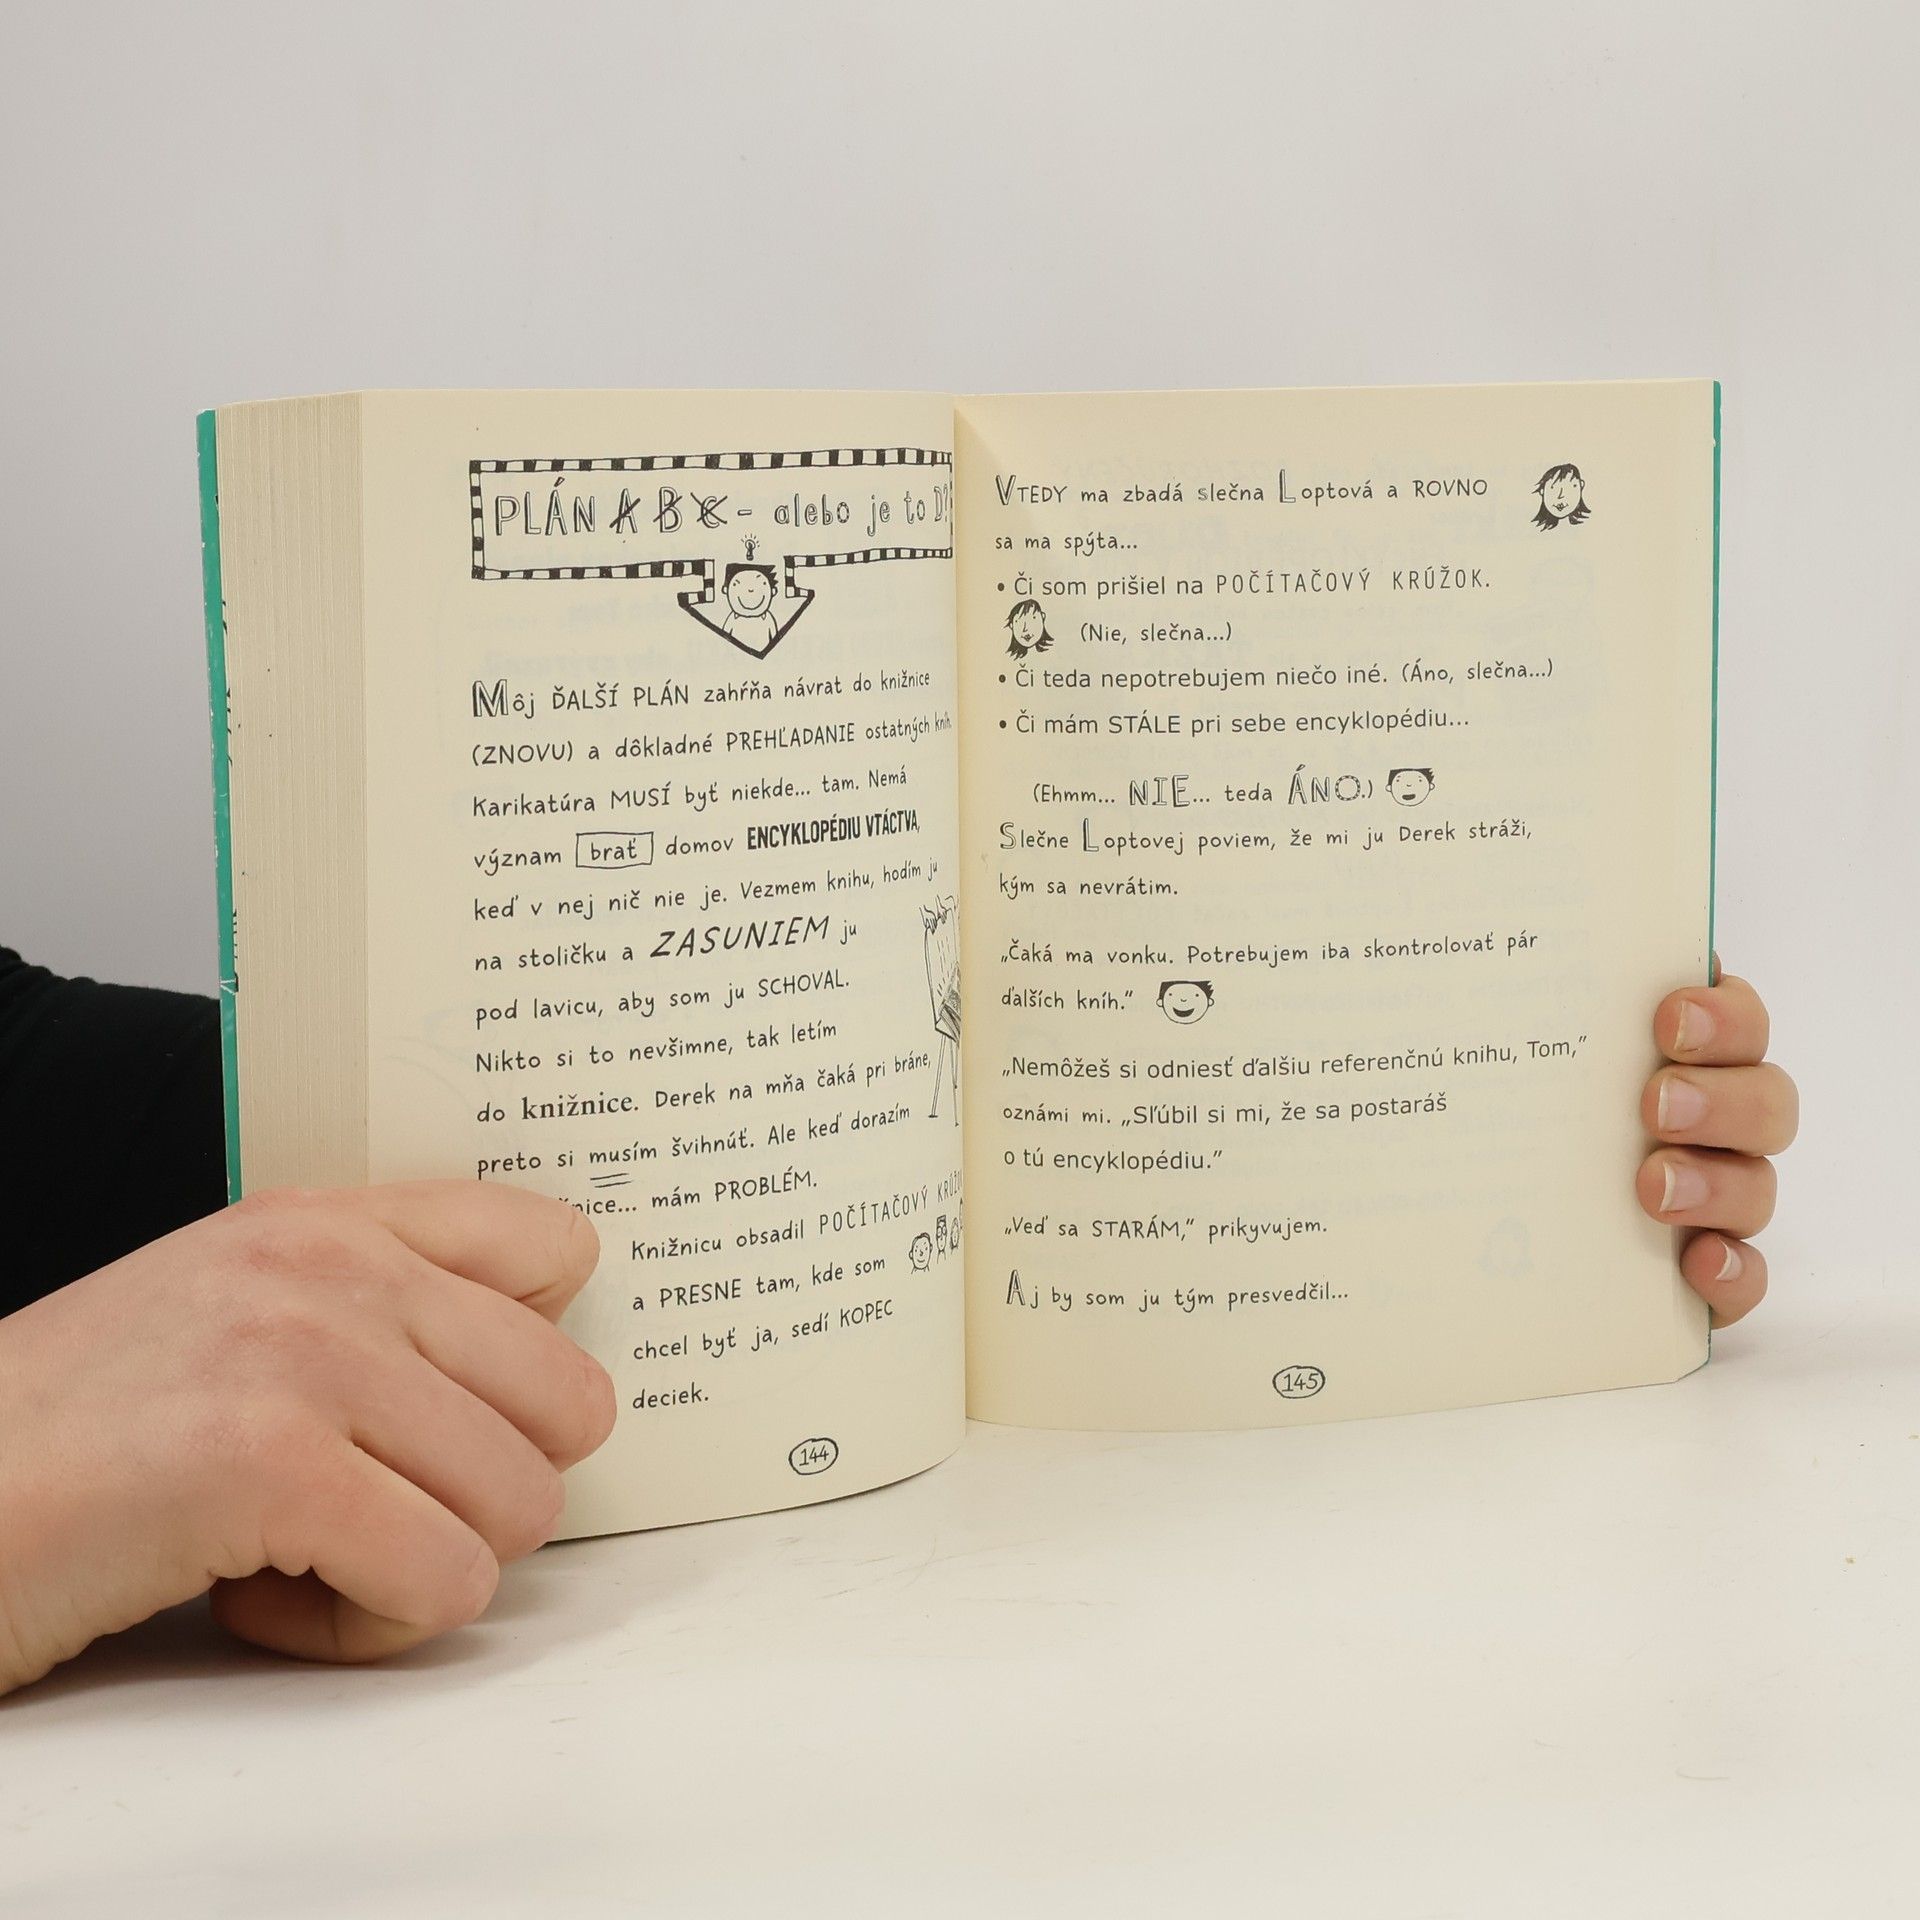 PLÁN A B C - alebo je to D?
Môj ĎALŠÍ PLÁN zahŕňa návrat do knižnice
(ZNOVU) a dôkladné PREHĽADANIE ostatných kníh.
Karikatúra MUSÍ byť niekde... tam. Nemá
význam brať domov ENCYKLOPÉDIU VTÁCTVA,
keď v nej nič nie je. Vezmem knihu, hodím ju
na stoličku a ZASUNIEM ju
pod lavicu, aby som ju SCHOVAL.
Nikto si to nevšimne, tak letím
do knižnice. Derek na mňa čaká pri bráne,
preto si musím švihnúť. Ale keď dorazím
mám PROBLÉM.
Knižnicu obsadil POČÍTAČOVÝ KRÚŽOK
a PRESNE tam, kde som
chcel byť ja, sedí KOPEC
deciek.
144
VTEDY ma zbadá slečna Loptová a ROVNO
sa ma spýta...
• Či som prišiel na POČÍTAČOVÝ KRÚŽOK.
(Nie, slečna...)
• Či teda nepotrebujem niečo iné. (Áno, slečna...)
• Či mám STÁLE pri sebe encyklopédiu...
(Ehmm... NIE... teda ÁNO.)
Slečne Loptovej poviem, že mi ju Derek stráži,
kým sa nevrátim.
„Čaká ma vonku. Potrebujem iba skontrolovať pár
ďalších kníh.“
„Nemôžeš si odniesť ďalšiu referenčnú knihu, Tom,“
oznámi mi. „Sľúbil si mi, že sa postaráš
o tú encyklopédiu.“
„Veď sa STARÁM,“ prikyvujem.
Aj by som ju tým presvedčil...
145